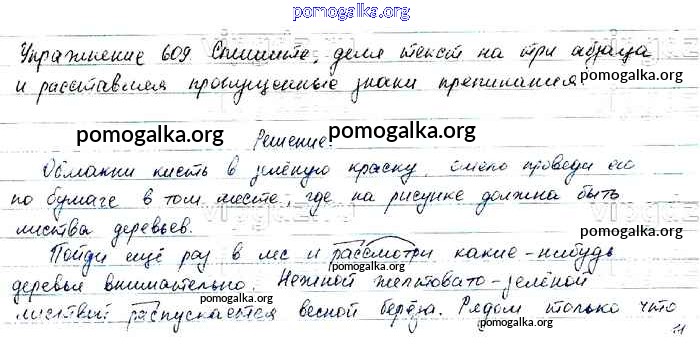 pomogalka.org
Упражнение 609 Спишите, деля текст на три абзаца
и расставляя пропущенные знаки препинания
pomogalka.org
pomogalka.org Решение: pomogalka.org
Обмакни кисть в зелёную краску, смело проведи ею
по бумаге в том месте, где на рисунке должна быть
листва деревьев.
Пойди ещё раз в лес и рассмотри какие-нибудь
деревья внимательно. Нежной желтовато-зелёной
pomogalka.org
листвой распускается весной берёза. Рядом только что
pomogalka.org
pomogalka.org